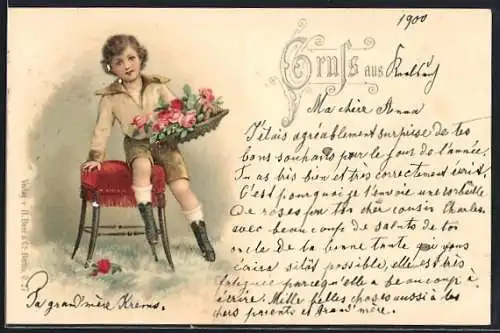 1900
Gruß aus
Ma chère Anna
J'étais agréablement surprise de tes
bons souhaits pour le jour de l'année.
Tu as bien et très correctement écrit,
C'est pourquoi je t'envoie une corbeille
de roses par ton cher cousin Charles.
avec beaucoup de saluts de ton
oncle de la bonne tante qui vous
écrira sitôt possible, elle est très
fatiguée parcequ'elle a beaucoup à
écrire. Mille belles choses aussi à tes
chers parents et grand'mère.
Ta grand'mère
Verlag v. H. Berlin